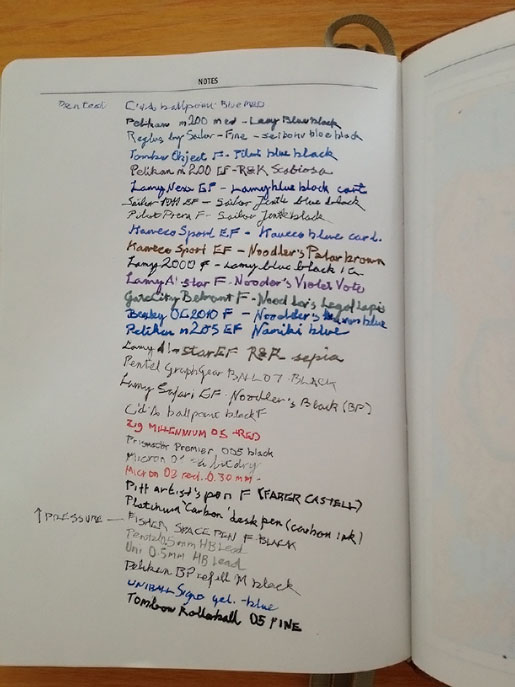 NOTES
Pentel Civils ballpoint Blue MED
Pelikan m200 med - Lamy Blue black
Reglus by Sailor - Fine - seiboku blue black
Tombow Object F - Pilot blue black
Pelikan m200 EF - R&K Scabiosa
Lamy New EF - Lamy blue black cart
Sailor 1911 EF - Sailor Jentle blue black
Pilot Prera F - Sailor Jentle black
Kaweco Sport EF - Kaweco blue card.
Kaweco Sport EF - Noodler's Polar brown
Lamy 2000 F - Lamy blue black
Lamy Al star F - Nooder's Violet Vote
Gate City Belmont F - Noodler's Legal Lapis
Bexley F - Noodler's blue
Pelikan m205 EF Namiki blue
Lamy Al-star EF R&K sepia
Pentel GraphGear BNL07 BLACK
Lamy Safari EF - Noodler's Black (BP)
ballpoint black F
Zig MILLENNIUM 05 - RED
Prismacolor Premier 005 black
Micron
Micron 03 red. 0.30mm -
Pitt artist's pen F (FABER CASTELL)
Platinum 'Carbon' desk pen (carbon ink)
↑ PRESSURE - FISHER SPACE PEN F - BLACK
Pentel 0.5mm HB Lead
Uni 0.5mm HB Lead
Pelikan BP refill M black
UNIBALL Signo gel - blue
Tombow Rollerball 05 FINE